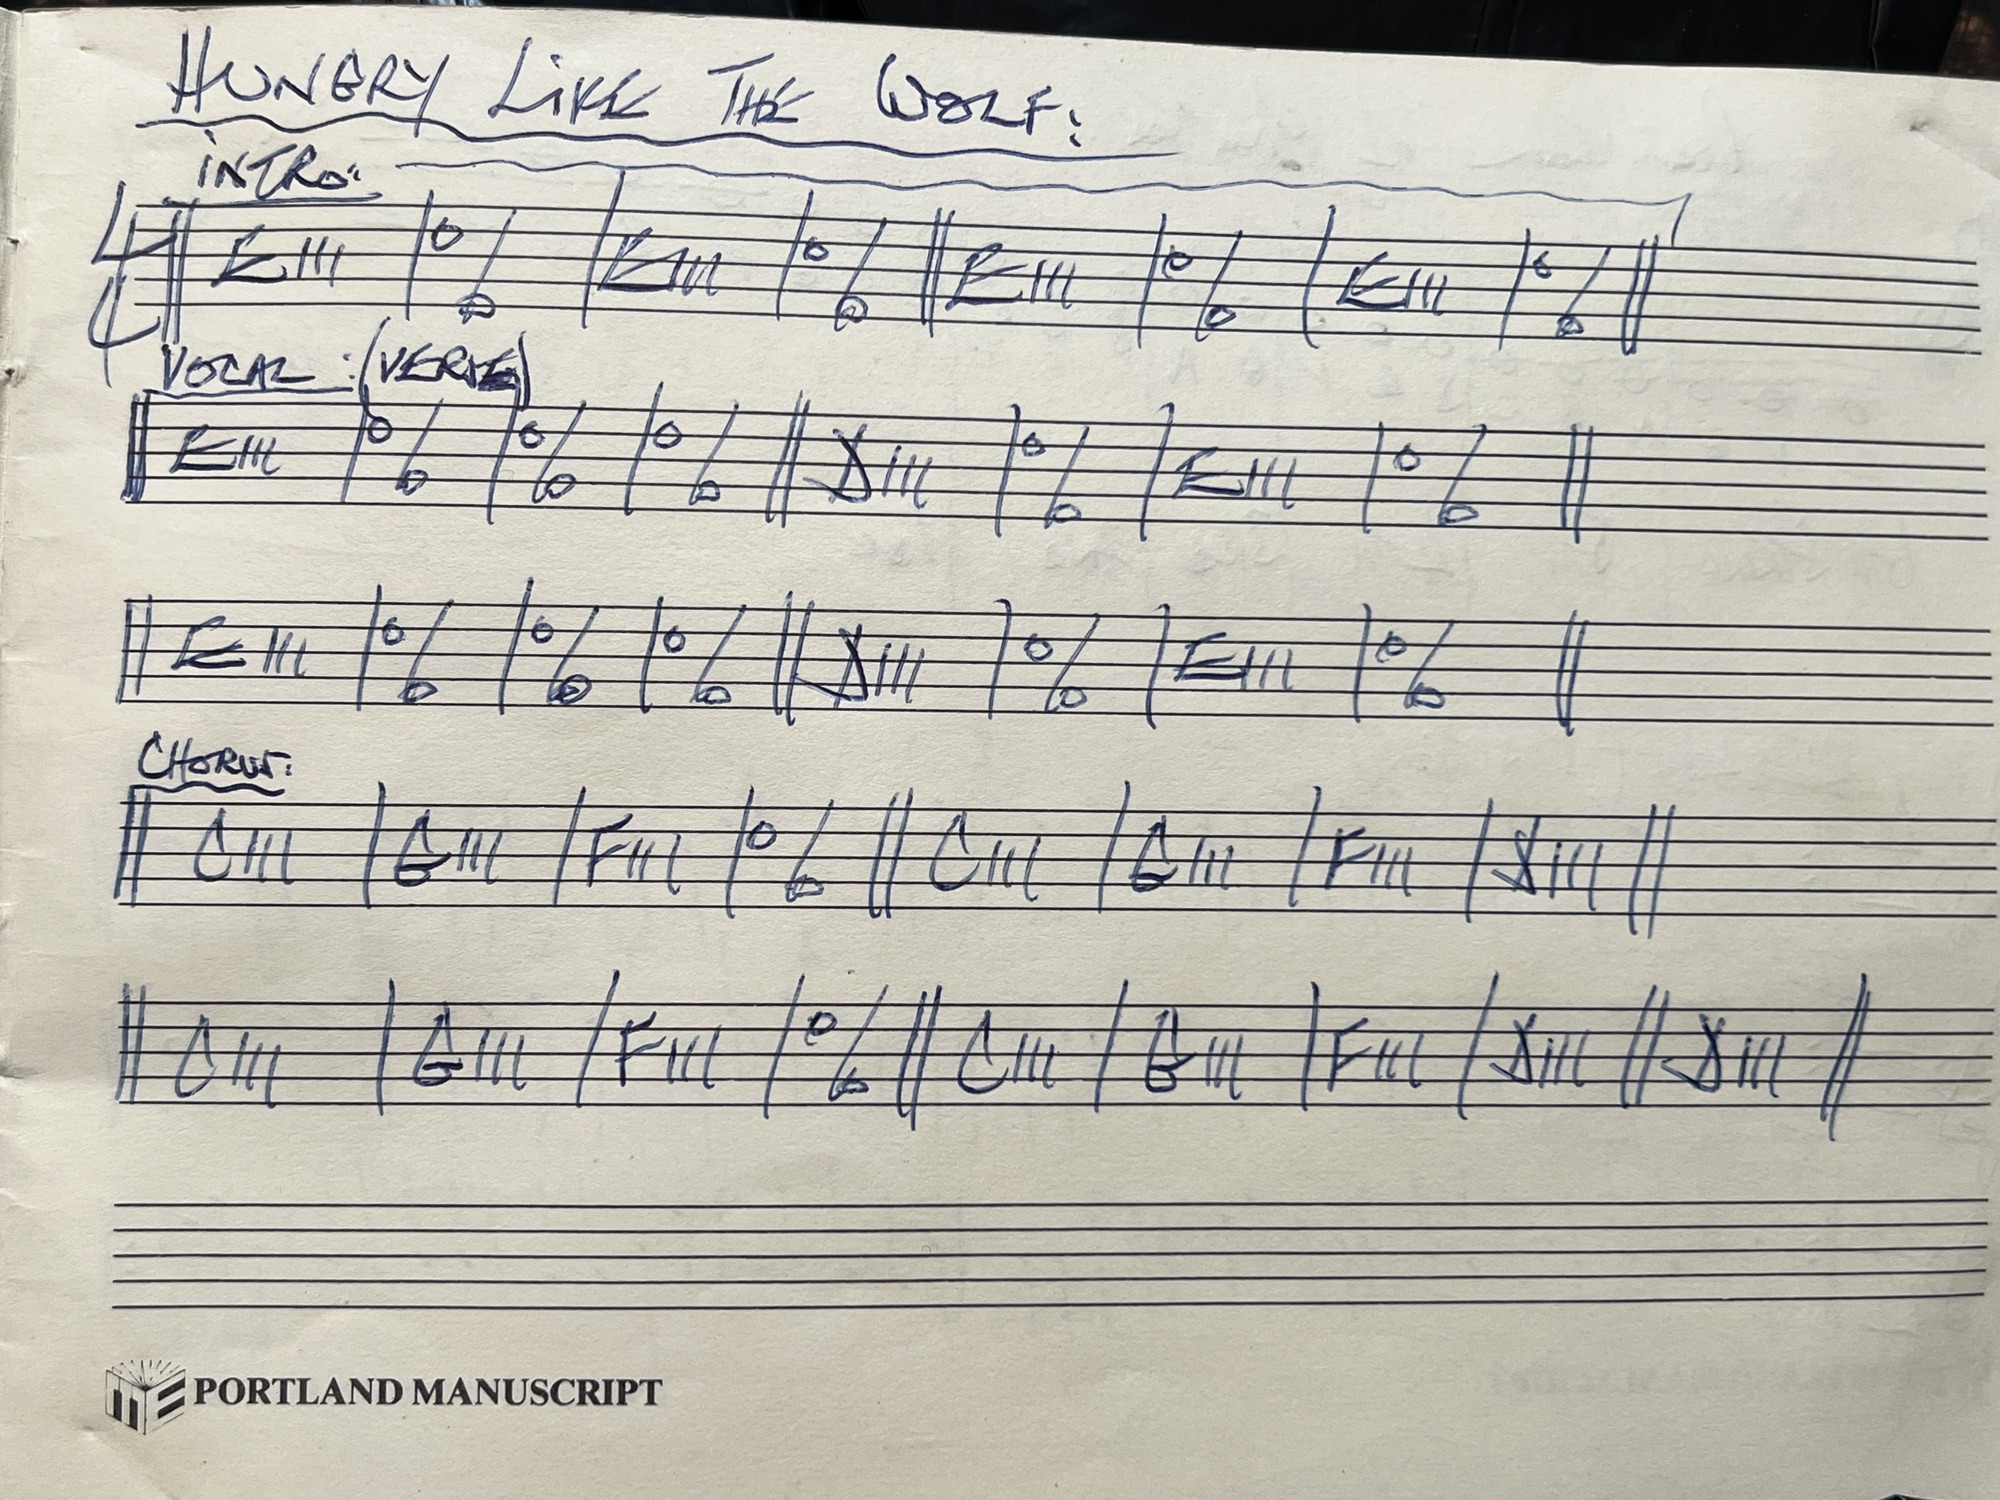 HUNGRY LIKE THE WOLF:
INTRO:
4/4 || E/// | % | E/// | % || E/// | % | E/// | % ||
VOCAL: (VERSE)
|| E/// | % | % | % || D/// | % | E/// | % ||
|| E/// | % | % | % || D/// | % | E/// | % ||
CHORUS:
|| C/// | G/// | F/// | % || C/// | G/// | F/// | D/// ||
|| C/// | G/// | F/// | % || C/// | G/// | F/// | D/// || D/// ||
PORTLAND MANUSCRIPT